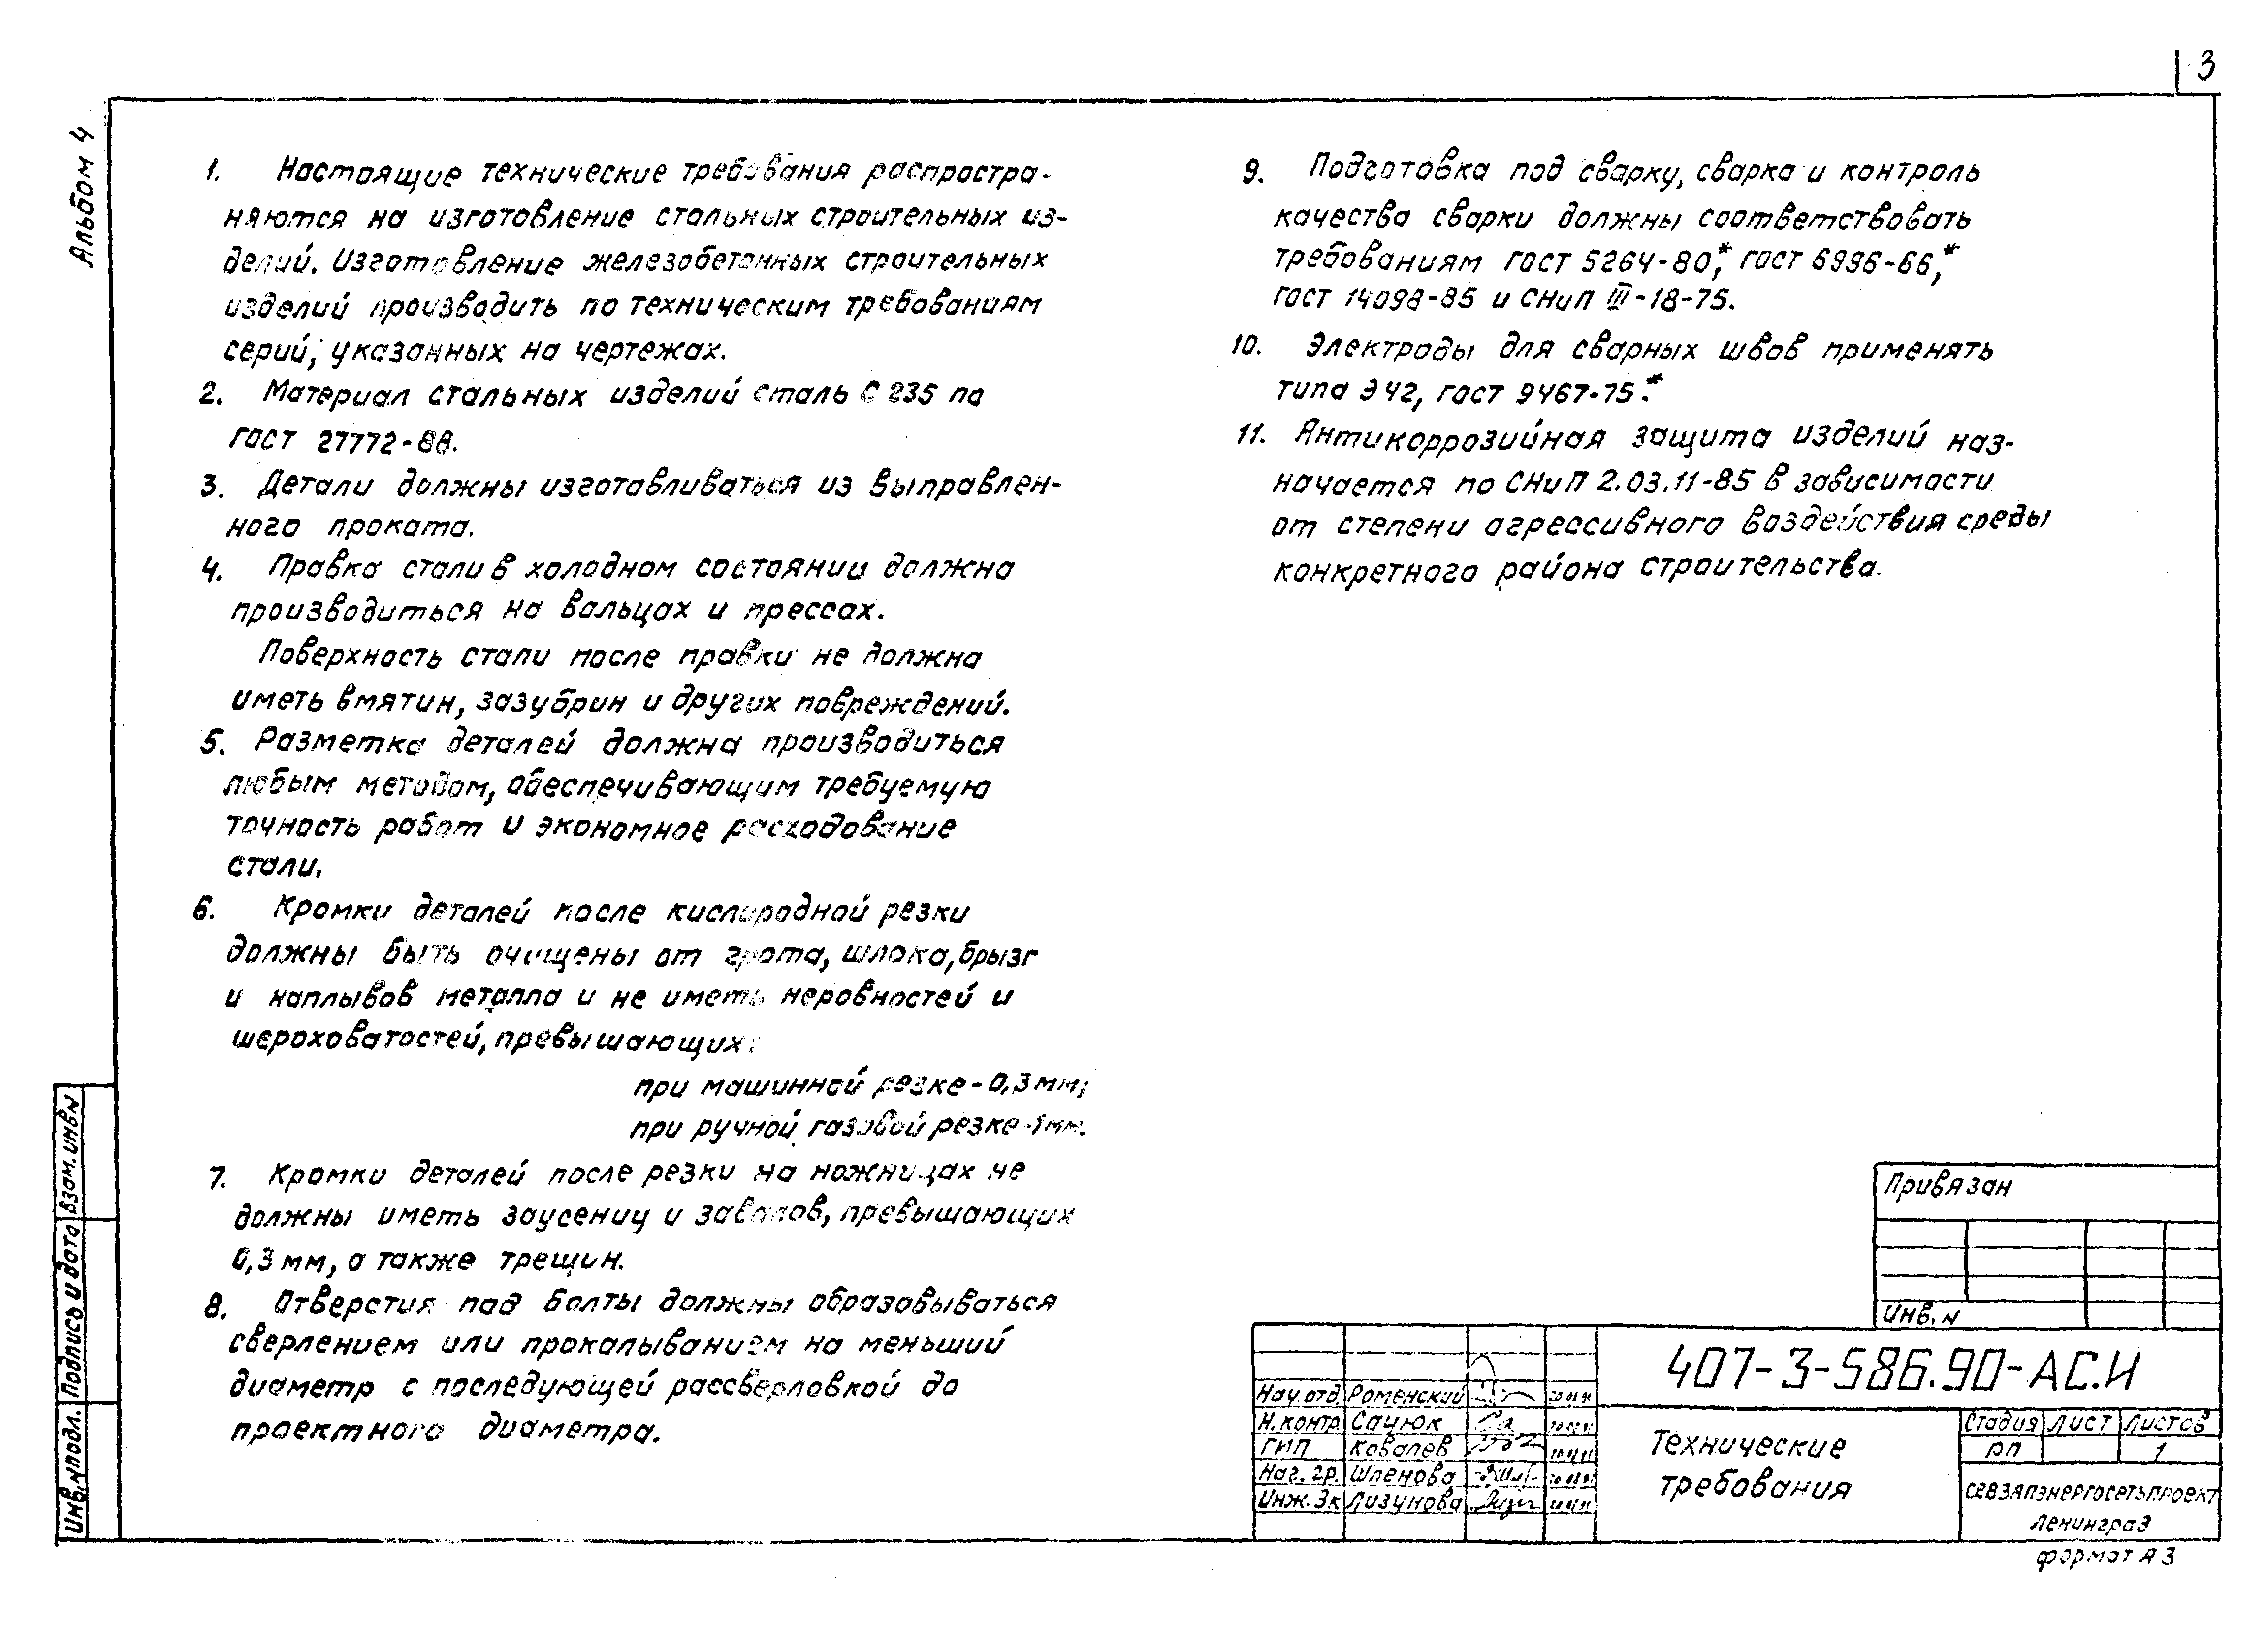 3
Альбом 4
1. Настоящие технические требования распростра-
няются на изготовление стальных строительных из-
делий. Изготовление железобетонных строительных
изделий производить по техническим требованиям
серий, указанных на чертежах.
2. Материал стальных изделий сталь С 235 по
ГОСТ 27772-88.
3. Детали должны изготавливаться из выправлен-
ного проката.
4. Правка стали в холодном состоянии должна
производиться на вальцах и прессах.
Поверхность стали после правки не должна
иметь вмятин, зазубрин и других повреждений.
5. Разметка деталей должна производиться
любым методом, обеспечивающим требуемую
точность работ и экономное расходование
стали.
6. Кромки деталей после кислородной резки
должны быть очищены от грата, шлака, брызг
и наплывов металла и не иметь неровностей и
шероховатостей, превышающих:
при машинной резке - 0,3 мм;
при ручной газовой резке - 1 мм.
7. Кромки деталей после резки на ножницах не
должны иметь заусениц и завалов, превышающих
0,3 мм, а также трещин.
8. Отверстия под болты должны образовываться
сверлением или прокалыванием на меньший
диаметр с последующей рассверловкой до
проектного диаметра.
9. Подготовка под сварку, сварка и контроль
качества сварки должны соответствовать
требованиям ГОСТ 5264-80*, ГОСТ 6996-66*,
ГОСТ 14098-85 и СНиП III-18-75.
10. Электроды для сварных швов применять
типа Э42, ГОСТ 9467-75*.
11. Антикоррозийная защита изделий наз-
начается по СНиП 2.03.11-85 в зависимости
от степени агрессивного воздействия среды
конкретного района строительства.
Взам. инв N
Подпись и дата
Инв. N подл.
Привязан
Инв. N
407-3-586.90-АС.И
Нач. отд. Роменский
Н. контр. Сацюк
ГИП Ковалев
Нач. гр. Шленова
Инж. 3к Лизунова
Технические
требования
Стадия Лист Листов
РП 1
Севзапэнергосетьпроект
Ленинград
формат А3